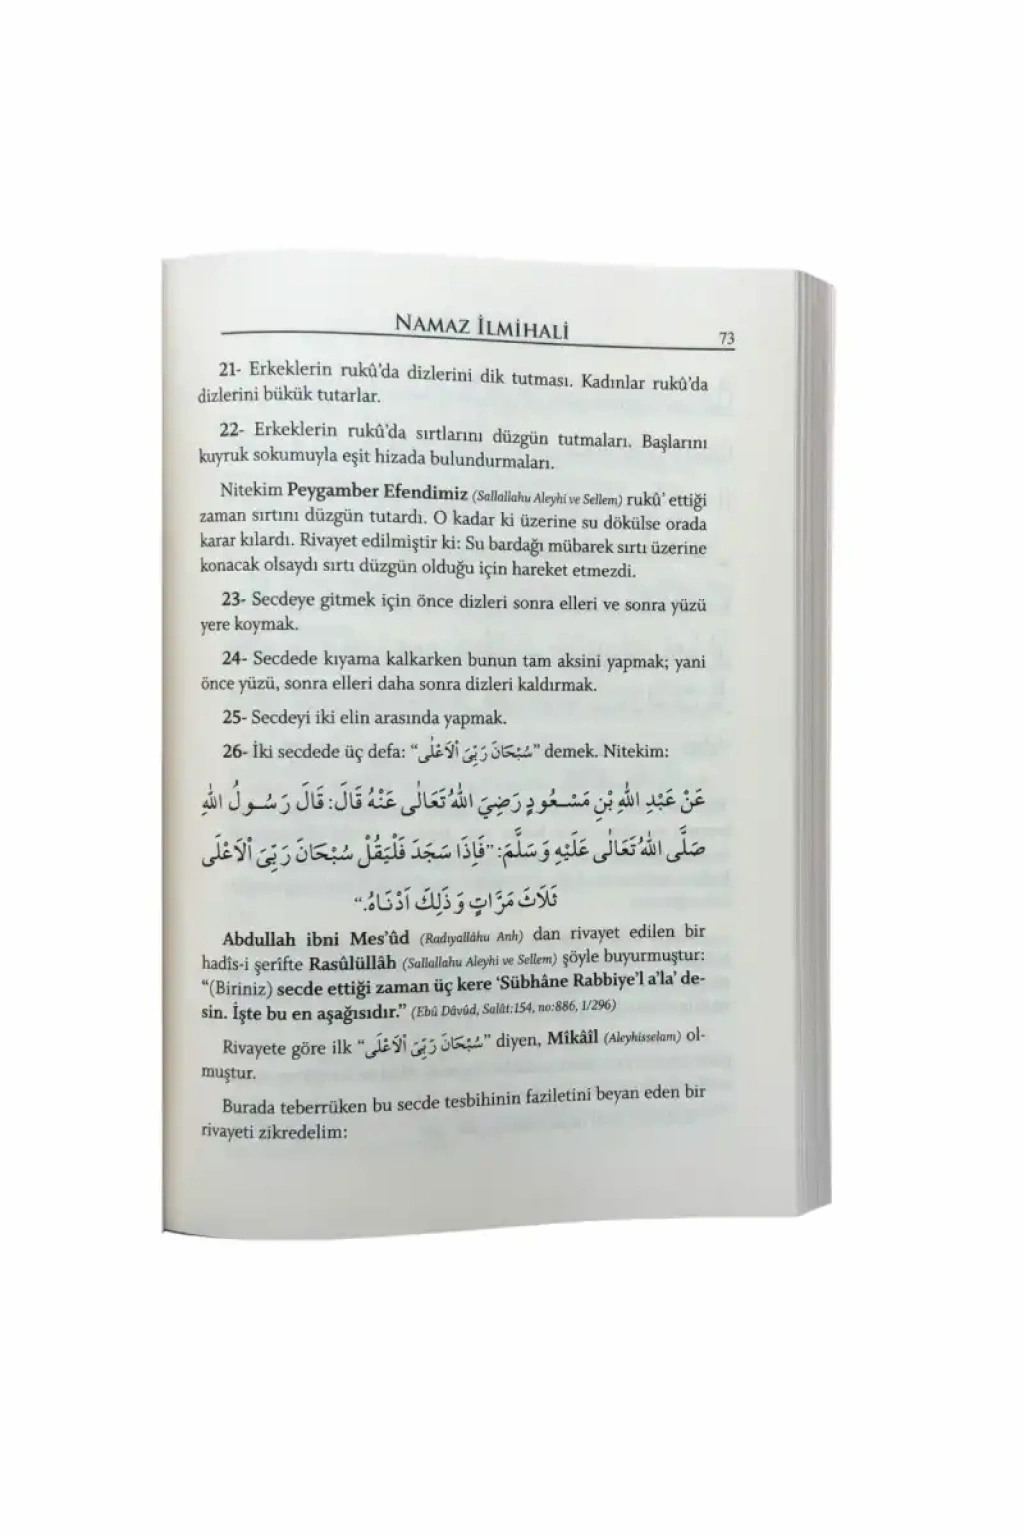 NAMAZ İLMİHALİ
73
21- Erkeklerin rukû'da dizlerini dik tutması. Kadınlar rukû'da
dizlerini bükük tutarlar.
22- Erkeklerin rukû'da sırtlarını düzgün tutmaları. Başlarını
kuyruk sokumuyla eşit hizada bulundurmaları.
Nitekim Peygamber Efendimiz (Sallallahu Aleyhi ve Sellem) rukû' ettiği
zaman sırtını düzgün tutardı. O kadar ki üzerine su dökülse orada
karar kılardı. Rivayet edilmiştir ki: Su bardağı mübarek sırtı üzerine
konacak olsaydı sırtı düzgün olduğu için hareket etmezdi.
23- Secdeye gitmek için önce dizleri sonra elleri ve sonra yüzü
yere koymak.
24- Secdede kıyama kalkarken bunun tam aksini yapmak; yani
önce yüzü, sonra elleri daha sonra dizleri kaldırmak.
25- Secdeyi iki elin arasında yapmak.
26- İki secdede üç defa: “سُبْحَانَ رَبِّيَ الْاَعْلٰى” demek. Nitekim:
عَنْ عَبْدِ اللّٰهِ بْنِ مَسْعُودٍ رَضِيَ اللّٰهُ تَعَالٰى عَنْهُ قَالَ: قَالَ رَسُولُ اللّٰهِ
صَلَّى اللّٰهُ تَعَالٰى عَلَيْهِ وَسَلَّمَ: "فَاِذَا سَجَدَ فَلْيَقُلْ سُبْحَانَ رَبِّيَ الْاَعْلٰى
ثَلَاثَ مَرَّاتٍ وَذٰلِكَ اَدْنَاهُ."
Abdullah ibni Mes'ûd (Radıyallâhu Anh) dan rivayet edilen bir
hadîs-i şerifte Rasûlüllâh (Sallallahu Aleyhi ve Sellem) şöyle buyurmuştur:
“(Biriniz) secde ettiği zaman üç kere ‘Sübhâne Rabbiye'l a'la’ de-
sin. İşte bu en aşağısıdır.” (Ebû Dâvûd, Salât:154, no:886, 1/296)
Rivayete göre ilk “سُبْحَانَ رَبِّيَ الْاَعْلٰى” diyen, Mîkâîl (Aleyhisselam) ol-
muştur.
Burada teberrüken bu secde tesbihinin faziletini beyan eden bir
rivayeti zikredelim: